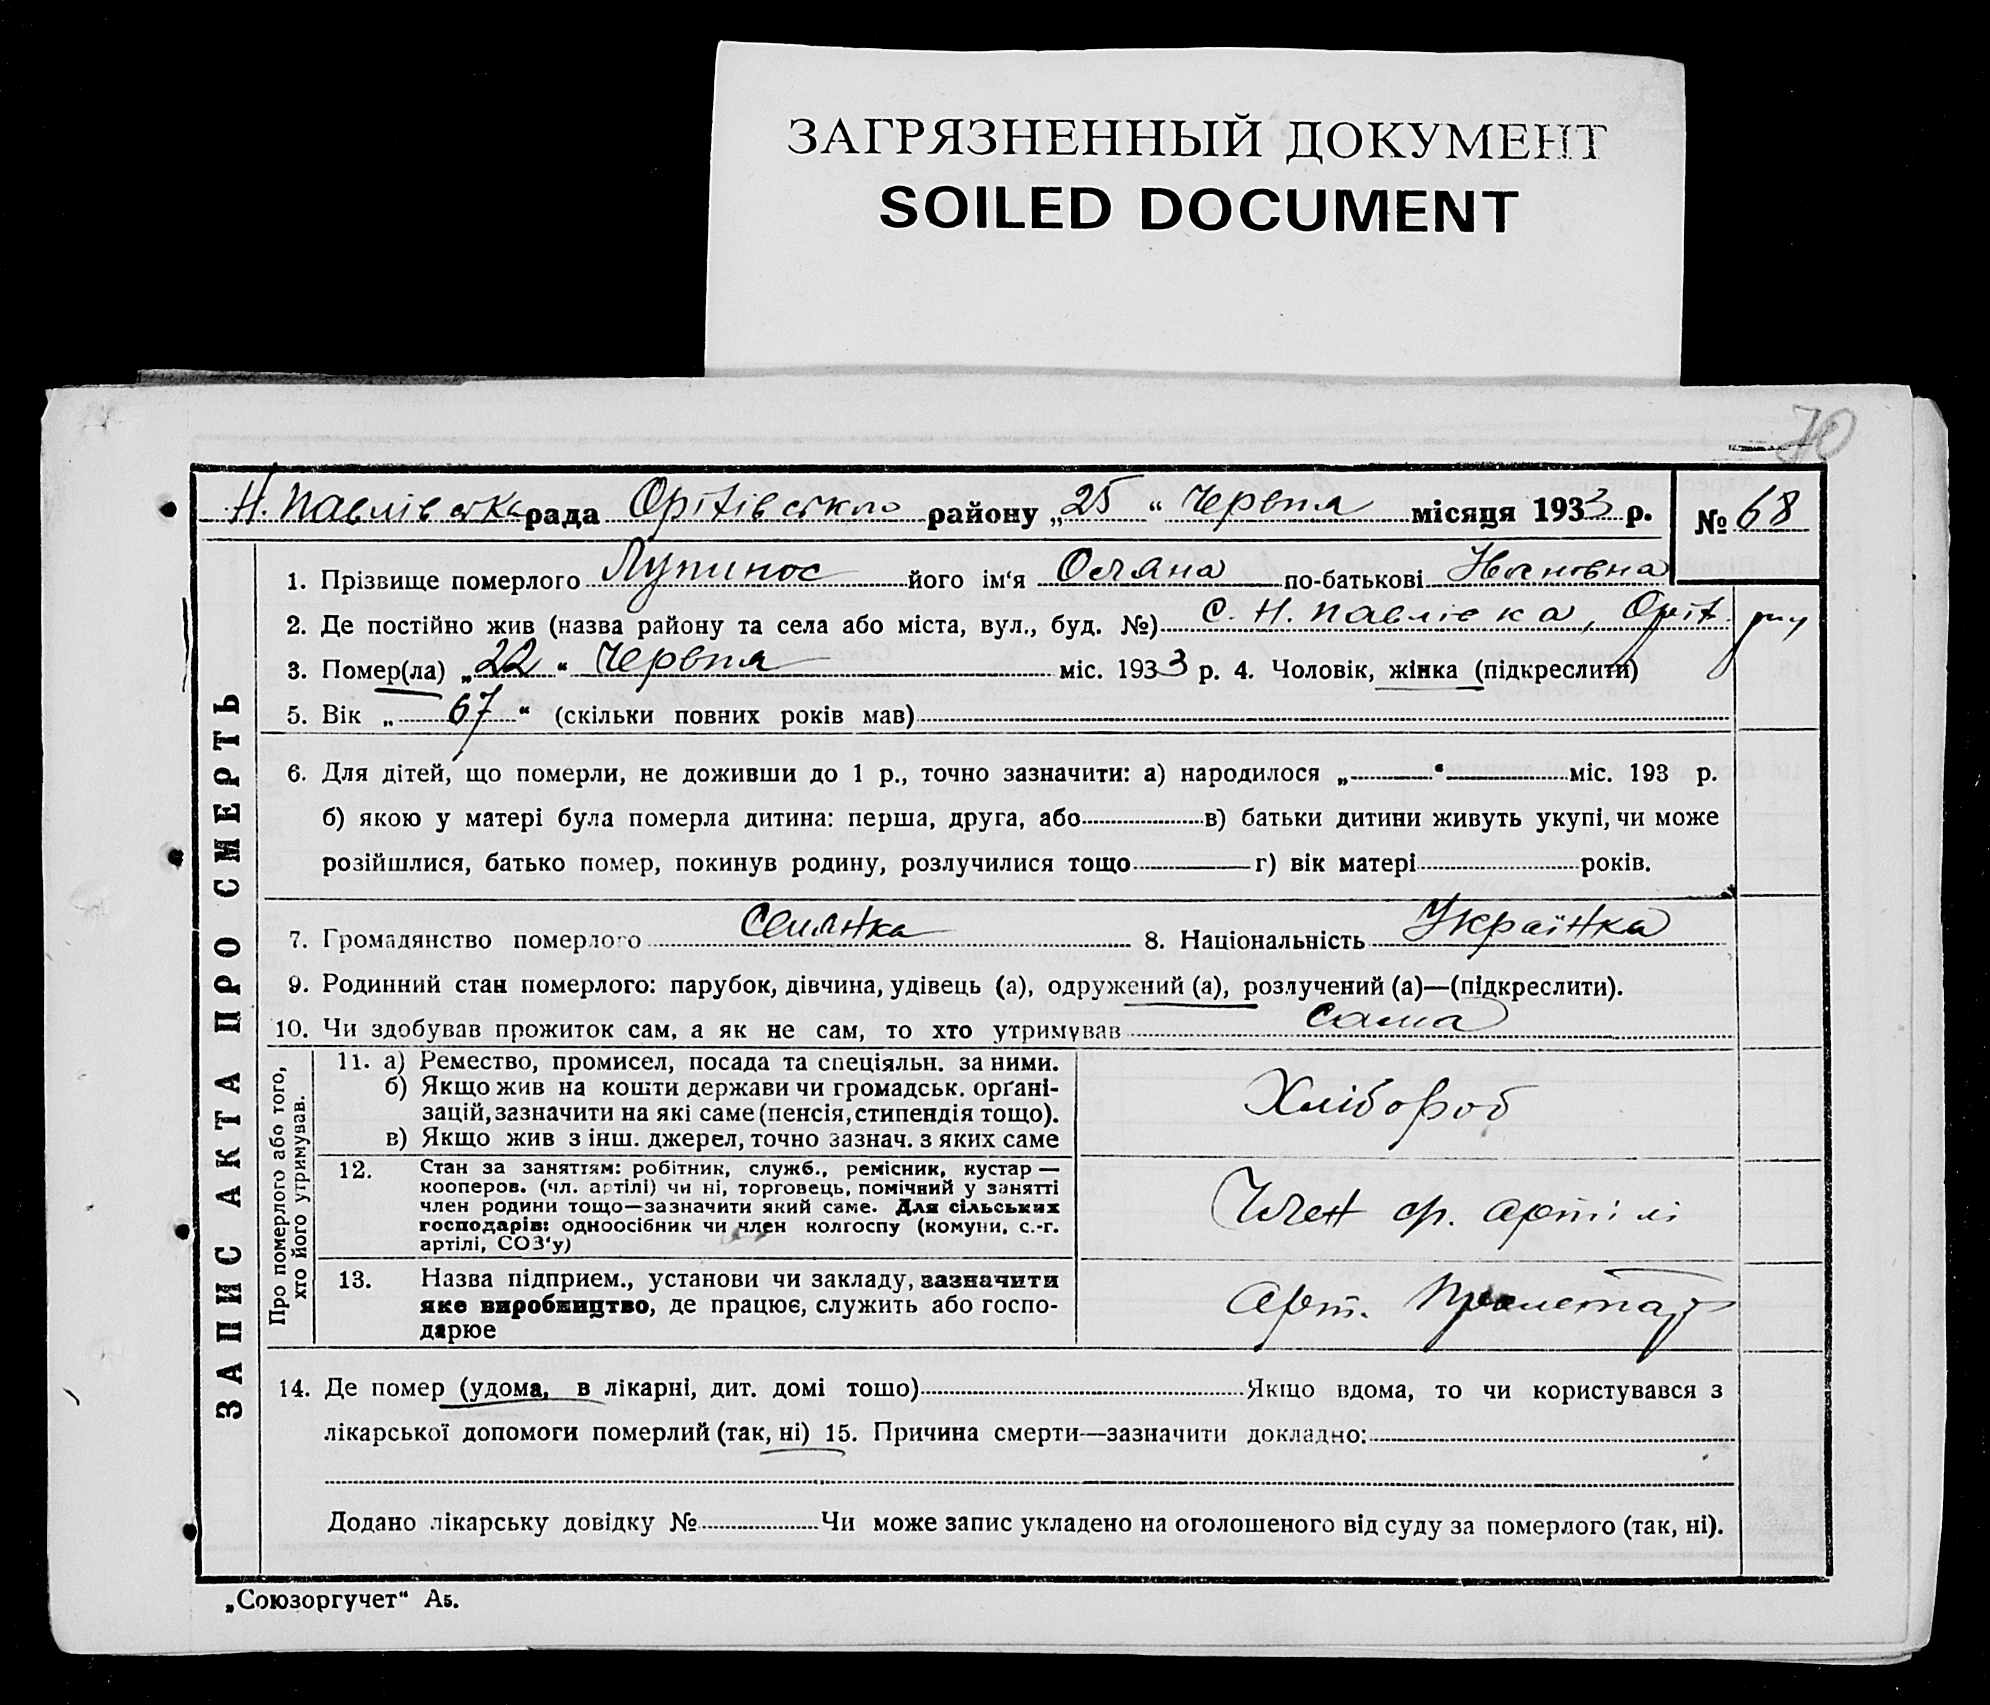 ЗАГРЯЗНЕННЫЙ ДОКУМЕНТ
SOILED DOCUMENT
70
Н. Павлівська рада Оріхівського району „25“ Червня місяця 1933 р. № 68
ЗАПИС АКТА ПРО СМЕРТЬ
1. Прізвище померлого Лупинос його ім‘я Оляна по-батькові Ивановна
2. Де постійно жив (назва району та села або міста, вул., буд. №) С. Н. Павлівка, Оріх. р-ну
3. Помер(ла) „22“ Червня міс. 1933 р. 4. Чоловік, жінка (підкреслити)
5. Вік „67“ (скільки повних років мав)
6. Для дітей, що померли, не доживши до 1 р., точно зазначити: а) народилося „ “ міс. 193 р.
б) якою у матері була померла дитина: перша, друга, або в) батьки дитини живуть укупі, чи може
розійшлися, батько помер, покинув родину, розлучилися тощо г) вік матері років.
7. Громадянство померлого Селянка 8. Національність Українка
9. Родинний стан померлого: парубок, дівчина, удівець (а), одружений (а), розлучений (а)—(підкреслити).
10. Чи здобував прожиток сам, а як не сам, то хто утримував Сама
Про померлого або того,
хто його утримував.
11. а) Ремество, промисел, посада та спеціяльн. за ними.
б) Якщо жив на кошти держави чи громадськ. орґані-
зацій, зазначити на які саме (пенсія, стипендія тощо).
в) Якщо жив з інш. джерел, точно зазнач. з яких саме
Хлібороб
12. Стан за заняттям: робітник, служб., ремісник, кустар —
кооперов. (чл. артілі) чи ні, торговець, помічний у занятті
член родини тощо—зазначити який саме. Для сільських
господарів: одноосібник чи член колгоспу (комуни, с.-г.
артілі, СОЗ‘у)
Член ср. артілі
13. Назва підприєм., установи чи закладу, зазначити
яке виробництво, де працює, служить або госпо-
дарює
Арт. Пролетар
14. Де помер (удома, в лікарні, дит. домі тощо) Якщо вдома, то чи користувався з
лікарської допомоги померлий (так, ні) 15. Причина смерти—зазначити докладно:
Додано лікарську довідку № Чи може запис укладено на оголошеного від суду за померлого (так, ні).
„Союзоргучет“ Аб.